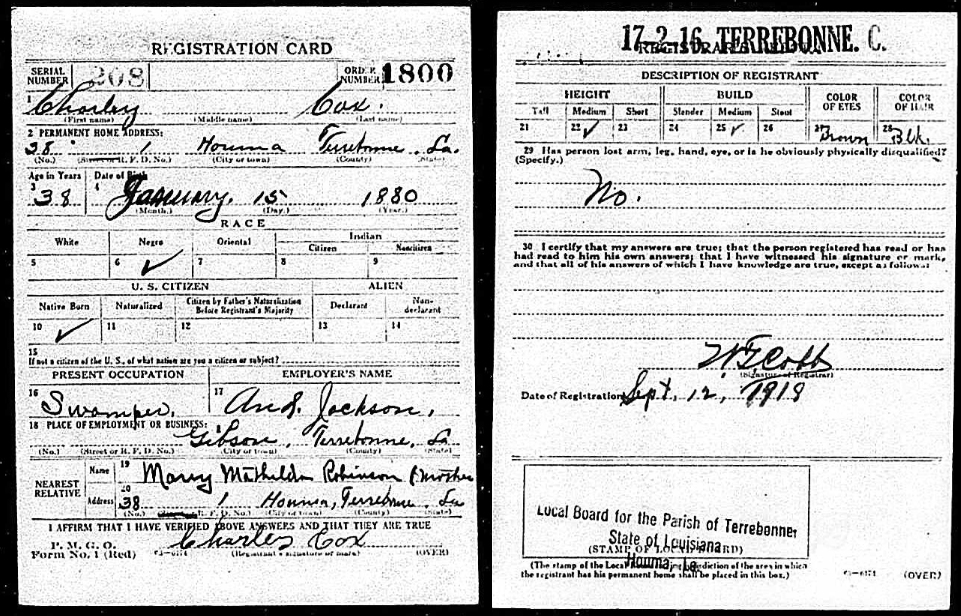 REGISTRATION CARD
SERIAL NUMBER 208 ORDER NUMBER 1800
1 Charley Cox.
(First name) (Middle name) (Last name)
2 PERMANENT HOME ADDRESS:
38 1 Houma Terrebonne La.
(No.) (Street or R. F. D. No.) (City or town) (County) (State)
Age in Years Date of Birth
3 38 4 January. 15 1880
(Month.) (Day.) (Year.)
RACE
White Negro Oriental Indian
Citizen Noncitizen
5 6 ✓ 7 8 9
U. S. CITIZEN ALIEN
Native Born Naturalized Citizen by Father's Naturalization Before Registrant's Majority Declarant Non-declarant
10 ✓ 11 12 13 14
15
If not a citizen of the U. S., of what nation are you a citizen or subject?
PRESENT OCCUPATION EMPLOYER'S NAME
16 Swamper. 17 And. Jackson.
18 PLACE OF EMPLOYMENT OR BUSINESS:
Gibson, Terrebonne, La
(No.) (Street or R. F. D. No.) (City or town) (County) (State)
NEAREST RELATIVE
Name 19 Marry Mathilda Robinson (mother
Address 20 38 1 Houma, Terrebonne, La
(No.) R. F. D. No.) (City or town) (County) (State)
I AFFIRM THAT I HAVE VERIFIED ABOVE ANSWERS AND THAT THEY ARE TRUE
P. M. G. O.
Form No. 1 (Red) Charles Cox
(Registrant's signature or mark) (OVER)
17-2-16. TERREBONNE. C.
REGISTRAR'S REPORT
DESCRIPTION OF REGISTRANT
HEIGHT BUILD COLOR OF EYES COLOR OF HAIR
Tall Medium Short Slender Medium Stout
21 22 ✓ 23 24 25 ✓ 26 27 Brown 28 Blk.
29 Has person lost arm, leg, hand, eye, or is he obviously physically disqualified?
(Specify.)
No.
30 I certify that my answers are true; that the person registered has read or has
had read to him his own answers; that I have witnessed his signature or mark,
and that all of his answers of which I have knowledge are true, except as follows:
(Signature of Registrar)
Date of Registration Sept. 12, 1918
Local Board for the Parish of Terrebonne
State of Louisiana
Houma, La.
(STAMP OF LOCAL BOARD)
(The stamp of the Local Board having jurisdiction of the area in which
the registrant has his permanent home shall be placed in this box.)
(OVER)